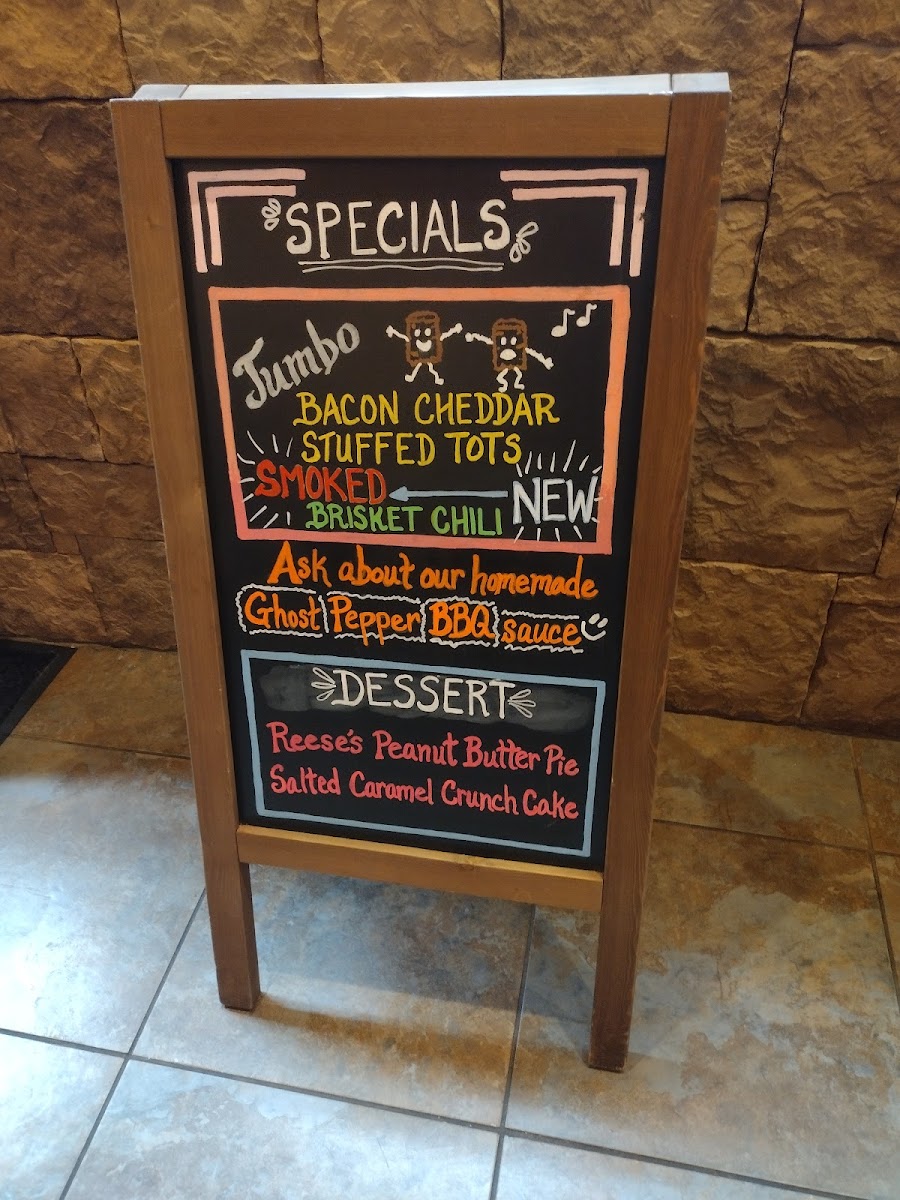 SPECIALS
Jumbo
BACON CHEDDAR
STUFFED TOTS
SMOKED NEW
BRISKET CHILI
Ask about our homemade
Ghost Pepper BBQ sauce
DESSERT
Reese's Peanut Butter Pie
Salted Caramel Crunch Cake